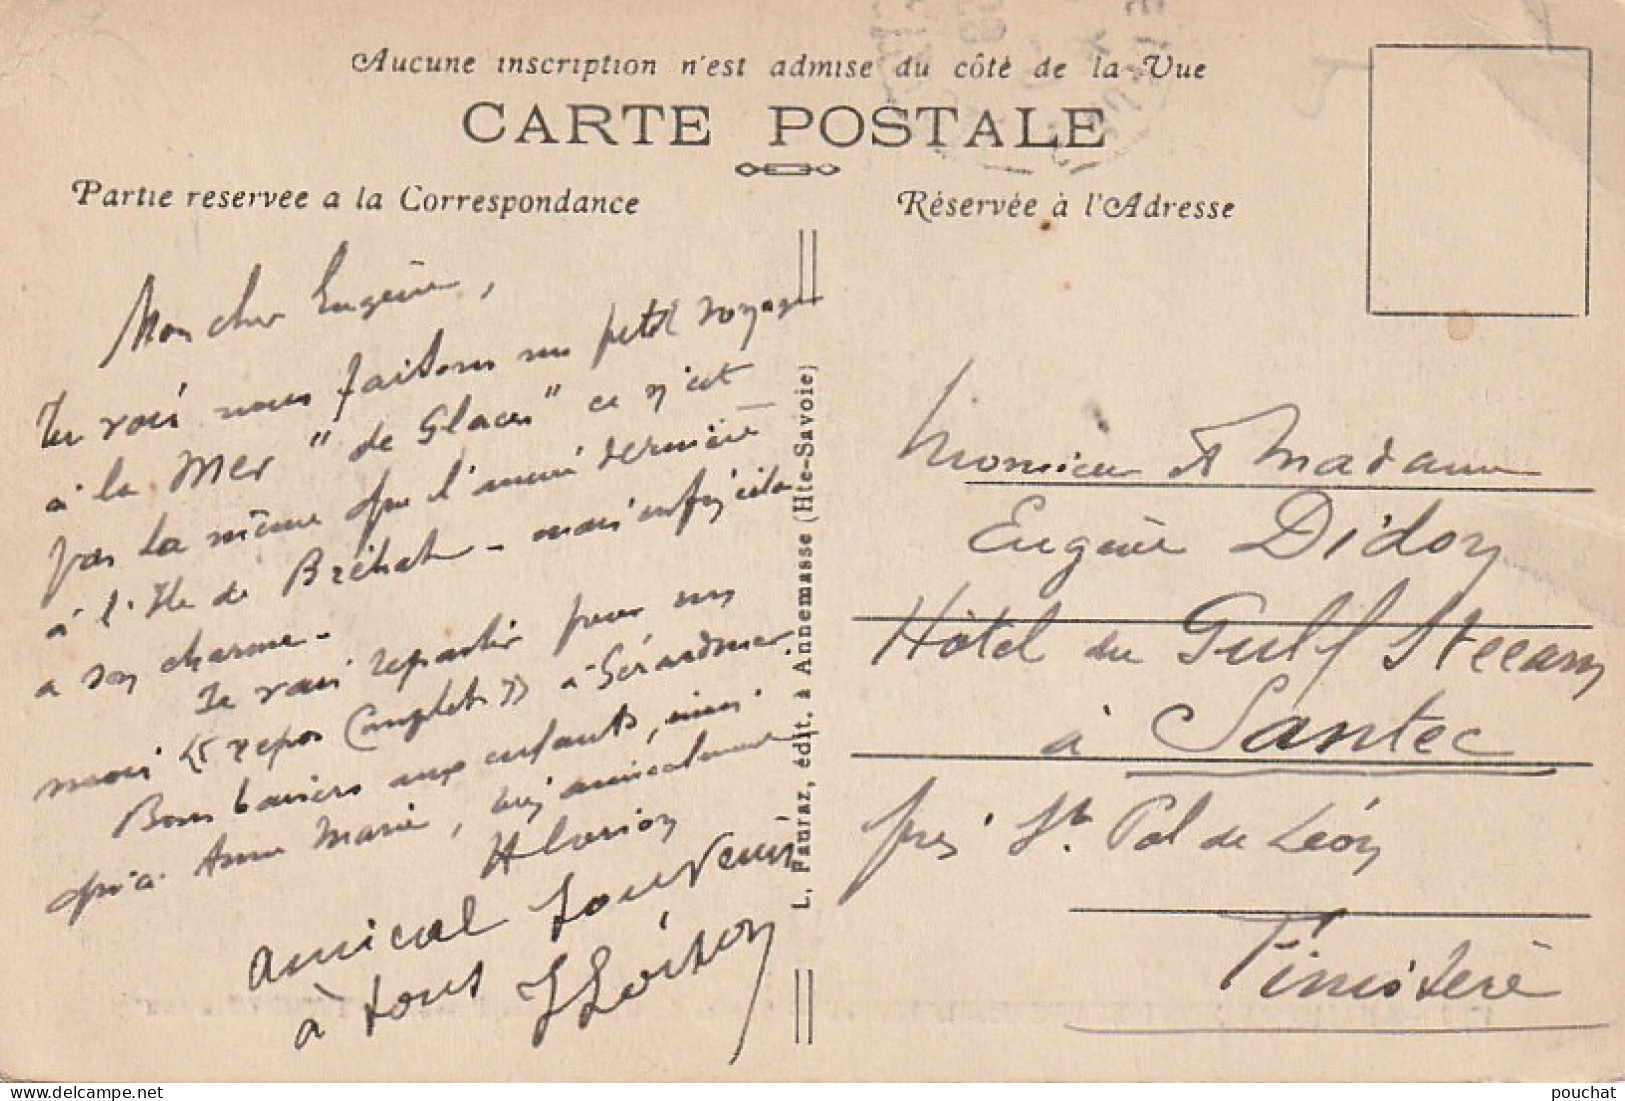 Aucune inscription n'est admise du côté de la Vue
CARTE POSTALE
Partie reservee a la Correspondance
Réservée à l'Adresse
Mon cher Eugène,
Tu vois nous faisons un petit voyage
à la Mer "de Glaces" ce n'est
pas la même que l'année dernière
à l'Ile de Bréhat - mais enfin, cela
a son charme -
Je vais repartir pour un
mois de repos Complet à Gérardmer
Bons baisers aux enfants, ainsi
qu'à Anne Marie, amicalement
amical souvenir
à tous
L. Fauraz, édit. à Annemasse (Hte-Savoie)
Monsieur et Madame
Eugène Didoy
Hôtel du Gulf Stream
à Santec
près St. Pol de Léon
Finistère
pouchat